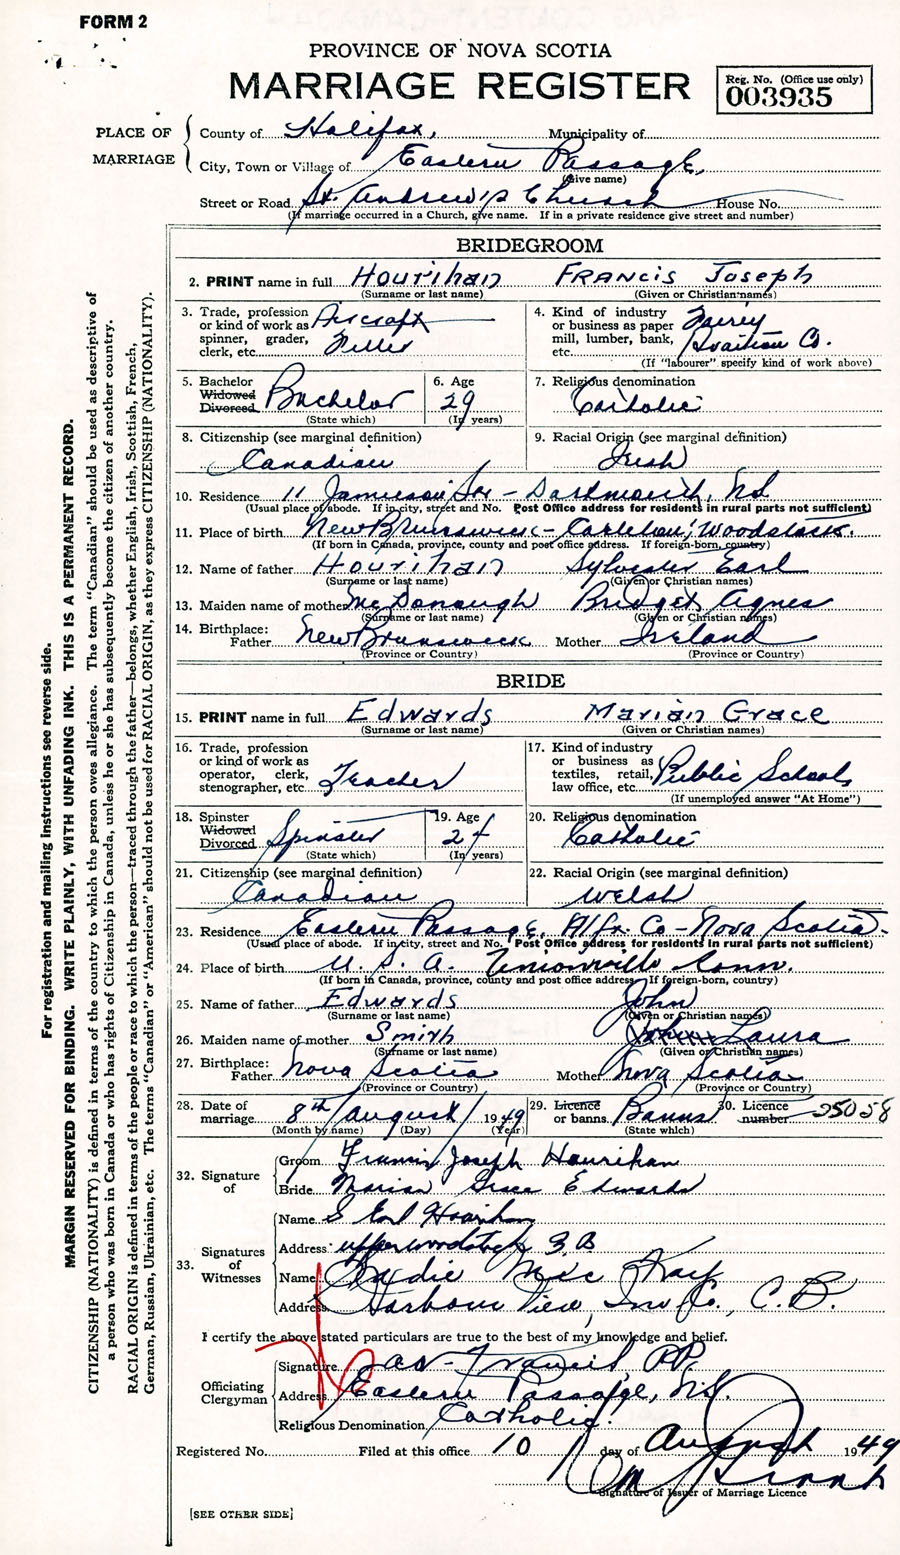 FORM 2
PROVINCE OF NOVA SCOTIA
MARRIAGE REGISTER
Reg. No. (Office use only)
003935
PLACE OF MARRIAGE
County of Halifax, Municipality of
City, Town or Village of Eastern Passage,
(Give name)
Street or Road St. Andrew's Church House No.
(If marriage occurred in a Church, give name. If in a private residence give street and number)
BRIDEGROOM
2. PRINT name in full Hourihan Francis Joseph
(Surname or last name) (Given or Christian names)
3. Trade, profession or kind of work as spinner, grader, clerk, etc. Aircraft Fitter
4. Kind of industry or business as paper mill, lumber, bank, etc. Fairey Aviation Co.
(If "labourer" specify kind of work above)
5. Bachelor Widowed Divorced Bachelor
(State which)
6. Age 29
(In years)
7. Religious denomination Catholic
8. Citizenship (see marginal definition) Canadian
9. Racial Origin (see marginal definition) Irish
10. Residence 11 Jamieson - Dartmouth, NS
(Usual place of abode. If in city, street and No. Post Office address for residents in rural parts not sufficient)
11. Place of birth New Brunswick - Carleton, Woodstock.
(If born in Canada, province, county and post office address. If foreign-born, country)
12. Name of father Hourihan Sylvester Earl
(Surname or last name) (Given or Christian names)
13. Maiden name of mother McDonaugh Bridget Agnes
(Surname or last name) (Given or Christian names)
14. Birthplace: Father New Brunswick Mother Ireland
(Province or Country) (Province or Country)
BRIDE
15. PRINT name in full Edwards Marian Grace
(Surname or last name) (Given or Christian names)
16. Trade, profession or kind of work as operator, clerk, stenographer, etc. Teacher
17. Kind of industry or business as textiles, retail, law office, etc. Public Schools
(If unemployed answer "At Home")
18. Spinster Widowed Divorced Spinster
(State which)
19. Age 27
(In years)
20. Religious denomination Catholic
21. Citizenship (see marginal definition) Canadian
22. Racial Origin (see marginal definition) Welsh
23. Residence Eastern Passage, Hfx. Co - Nova Scotia.
(Usual place of abode. If in city, street and No. Post Office address for residents in rural parts not sufficient)
24. Place of birth U. S. A. Unionville Conn.
(If born in Canada, province, county and post office address. If foreign-born, country)
25. Name of father Edwards John
(Surname or last name) (Given or Christian names)
26. Maiden name of mother Smith Laura
(Surname or last name) (Given or Christian names)
27. Birthplace: Father Nova Scotia Mother Nova Scotia
(Province or Country) (Province or Country)
28. Date of marriage 8th August 1949
(Month by name) (Day) (Year)
29. Licence or banns Banns
(State which)
30. Licence number 25058
32. Signature of
Groom Francis Joseph Hourihan
Bride Marian Grace Edwards
33. Signatures of Witnesses
Name S Earl Hourihan
Address upper woodstock N.B
Name Mac Kay
Address Harbour View Inv. Co., C.B.
I certify the above stated particulars are true to the best of my knowledge and belief.
Officiating Clergyman
Signature Francis P.P.
Address Eastern Passage, N.S.
Religious Denomination Catholic.
Registered No. Filed at this office 10 day of August 1949
Signature of Issuer of Marriage Licence
[SEE OTHER SIDE]
For registration and mailing instructions see reverse side.
MARGIN RESERVED FOR BINDING. WRITE PLAINLY, WITH UNFADING INK. THIS IS A PERMANENT RECORD.
CITIZENSHIP (NATIONALITY) is defined in terms of the country to which the person owes allegiance. The term "Canadian" should be used as descriptive of
a person who was born in Canada or who has rights of Citizenship in Canada, unless he or she has subsequently become the citizen of another country.
RACIAL ORIGIN is defined in terms of the people or race to which the person—traced through the father—belongs, whether English, Irish, Scottish, French,
German, Russian, Ukrainian, etc. The terms "Canadian" or "American" should not be used for RACIAL ORIGIN, as they express CITIZENSHIP (NATIONALITY).